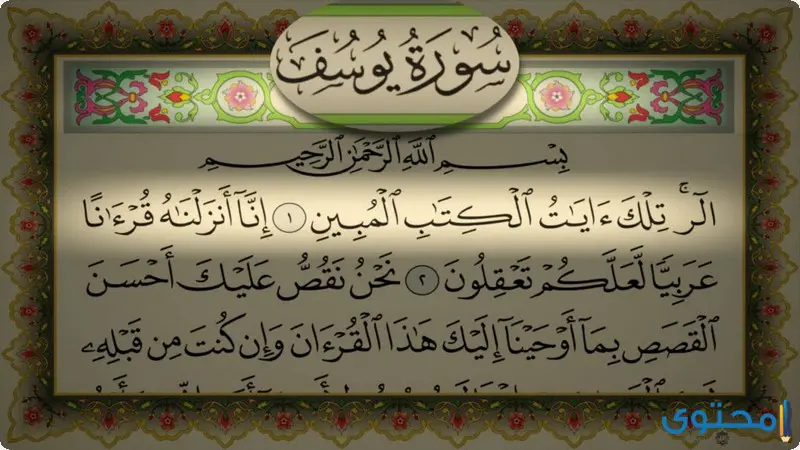 سُورَةُ يُوسُفَ
بِسْمِ ٱللَّهِ ٱلرَّحْمَٰنِ ٱلرَّحِيمِ
الٓر ۚ تِلْكَ ءَايَٰتُ ٱلْكِتَٰبِ ٱلْمُبِينِ ١ إِنَّآ أَنزَلْنَٰهُ قُرْءَٰنًا
عَرَبِيًّا لَّعَلَّكُمْ تَعْقِلُونَ ٢ نَحْنُ نَقُصُّ عَلَيْكَ أَحْسَنَ
ٱلْقَصَصِ بِمَآ أَوْحَيْنَآ إِلَيْكَ هَٰذَا ٱلْقُرْءَانَ وَإِن كُنتَ مِن قَبْلِهِۦ
محتوى